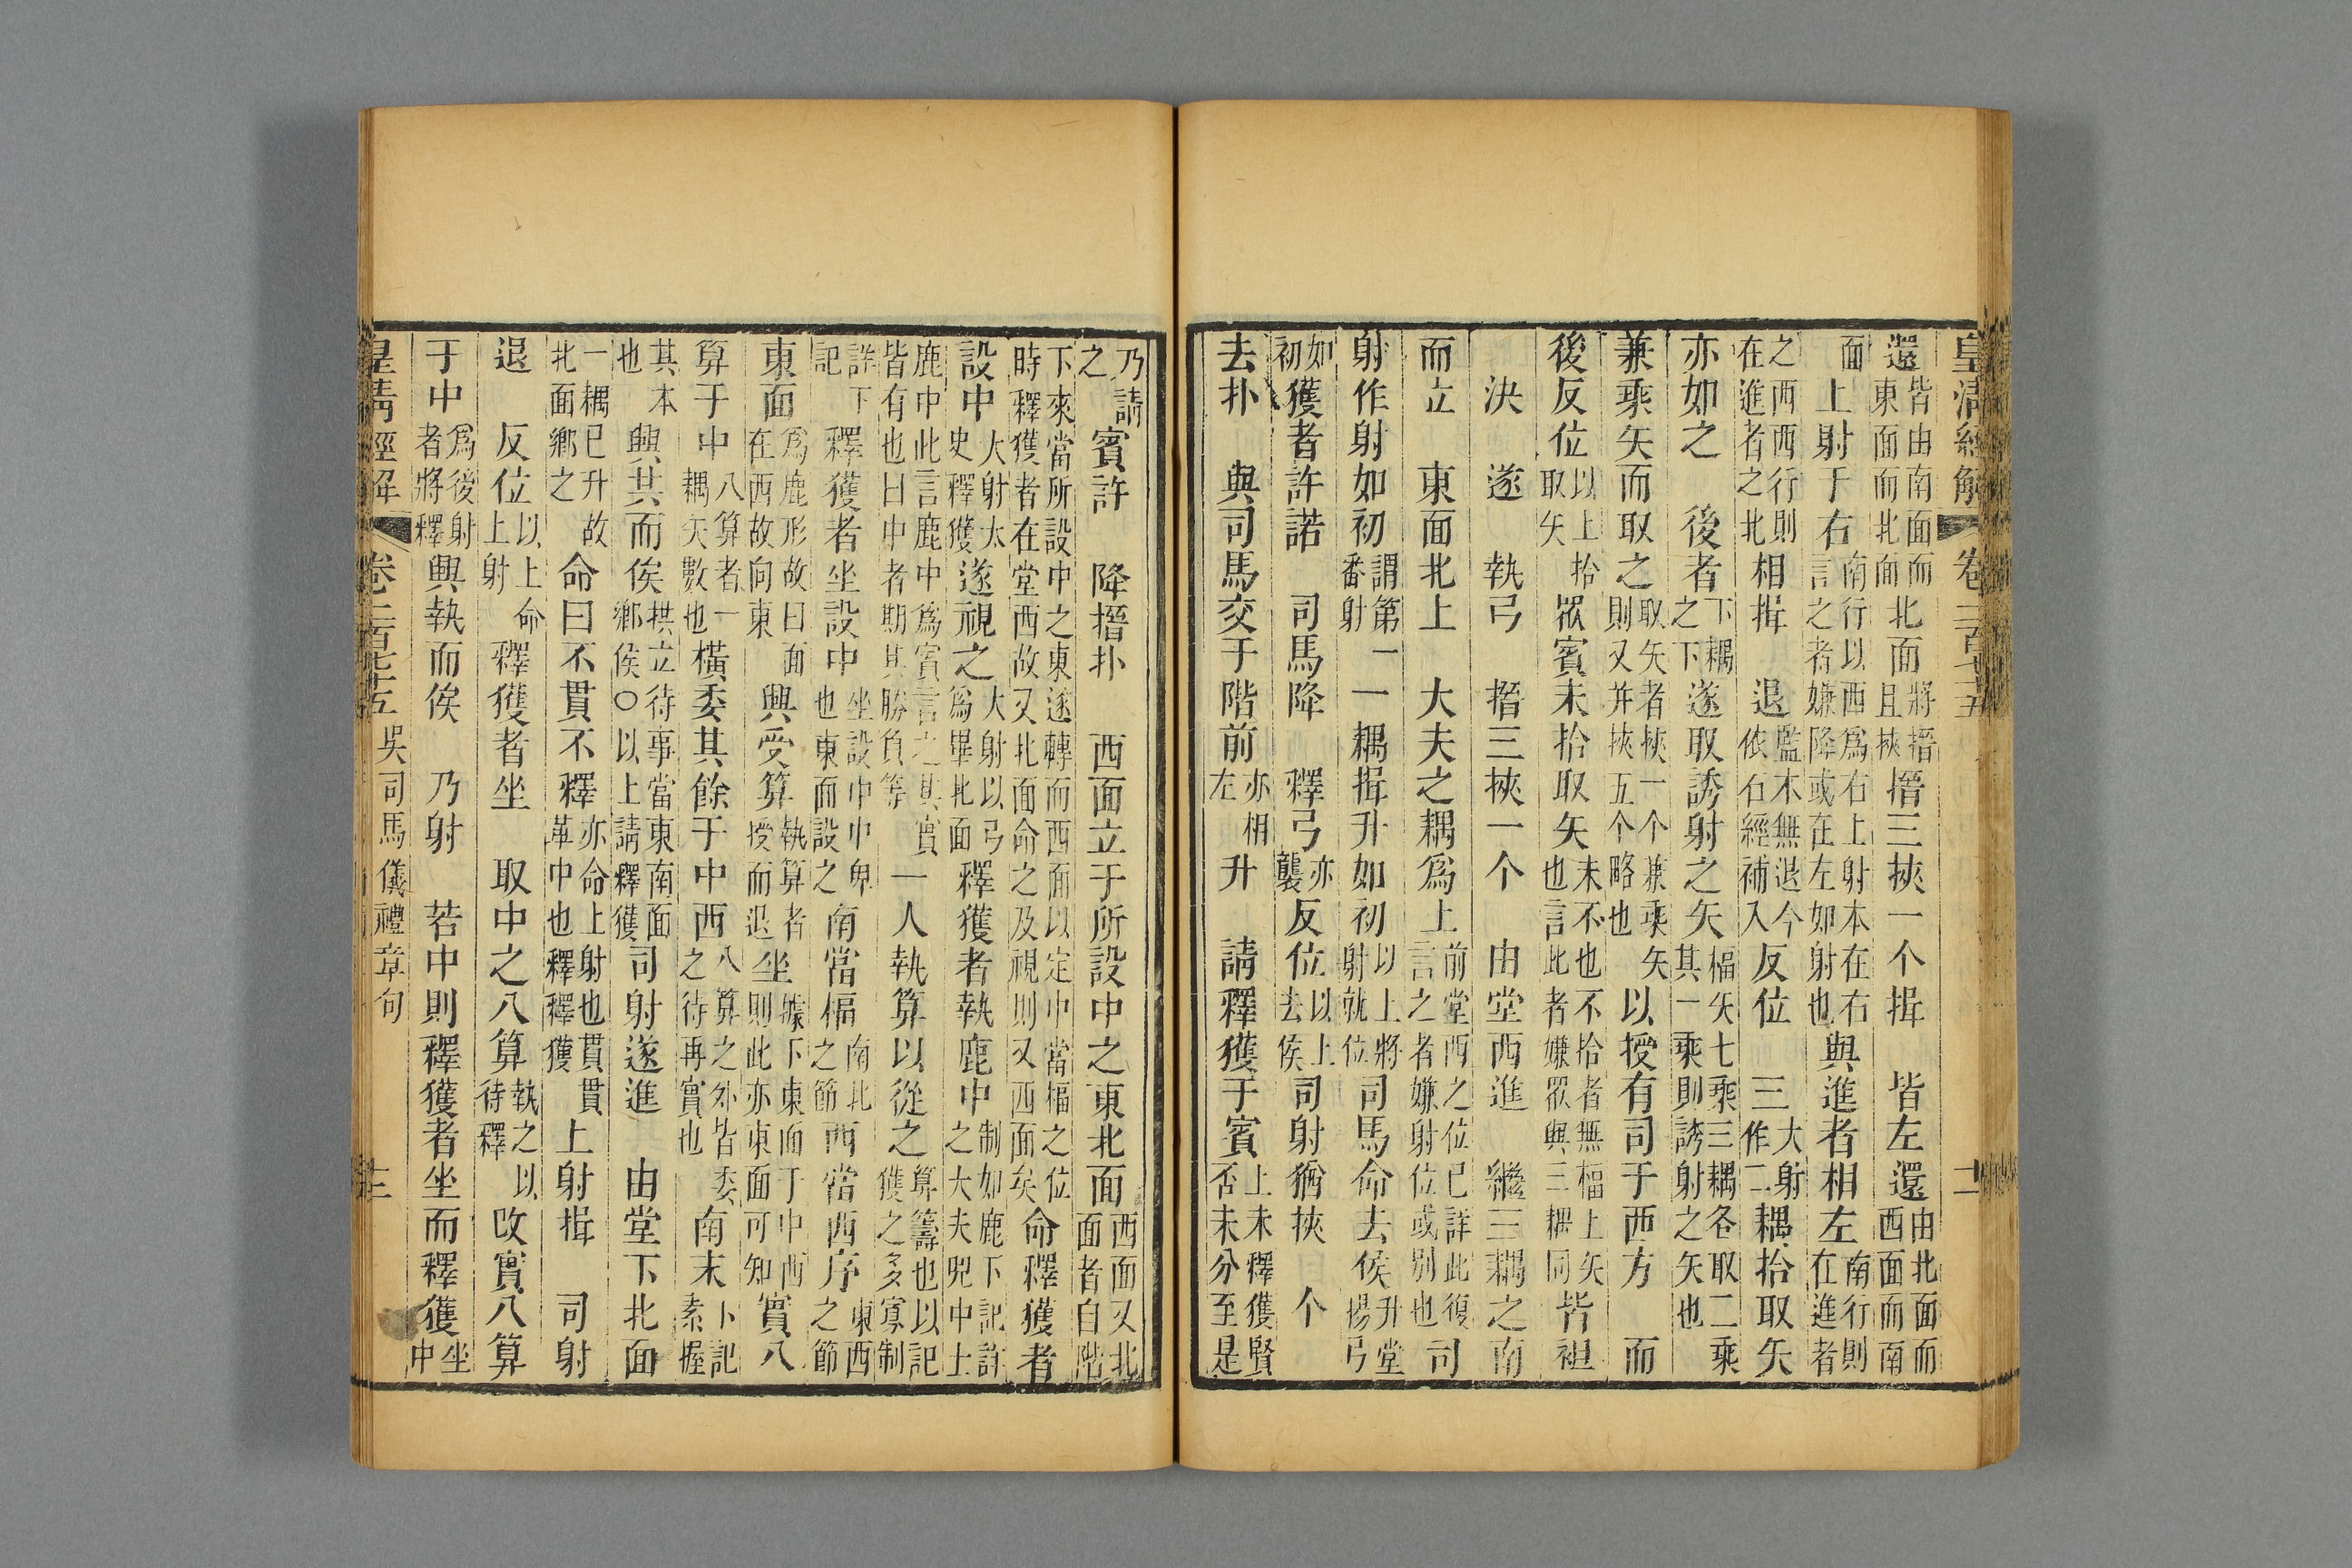 皇清經解 卷二百七十五 十二
還皆由南面而東面而北面北面將搢且挾搢三挾一个揖 皆左還由北面而西面而南
面 上射于右南行以西爲右上射本在右言之者嫌降或在左如射也與進者相左南行則在進者
之西西行則在進者之北相揖 退監本無退今依石經補入反位 三大射作二耦拾取矢
亦如之 後者下耦之下遂取誘射之矢楅矢七乘三耦各取二乘其一乘則誘射之矢也
兼乘矢而取之取矢者挾一个兼乘矢則又并挾五个略也以授有司于西方 而
後反位以上拾取矢 眾賓未拾取矢未不也不拾者無楅上矢也言此者嫌眾與三耦同皆袒
決 遂 執弓 搢三挾一个 由堂西進 繼三耦之南
而立 東面北上 大夫之耦爲上前堂西之位已詳此復言之者嫌射位或別也 司
射作射如初謂第一番射一耦揖升如初以上將射就位司馬命去侯升堂揚弓
如初獲者許諾 司馬降 釋弓亦襲反位以上去侯司射猶挾 个
去扑 與司馬交于階前亦相左升 請釋獲于賓上未釋獲賢否未分至是
乃請之賓許 降搢扑 西面立于所設中之東北面西面又北面者自階
下來當所設中之東遂轉而西面以定中當楅之位時釋獲者在堂西故又北面命之及視則又西面矣命釋獲者
設中大射太史釋獲遂視之大射以弓爲畢北面釋獲者執鹿中制如鹿下記詳之大夫兕中士
鹿中此言鹿中爲賓言之其實皆有也曰中者期其勝負等一人執算以從之算籌也以記獲之多寡制
詳下記 釋獲者坐設中坐設中中卑也東面設之南當楅南北之節西當西序東西之節
東面爲鹿形故曰面在西故向東興受算執算者授而退坐據下東面于中西則此亦東面可知實八
算于中八算者一耦矢數也橫委其餘于中西八算之外皆委之待再實也南末卜記素握
其本也 興共而俟拱立待事當東南面鄉侯〇以上請釋獲司射遂進 由堂下北面
一耦已升故北面鄉之 命曰不貫不釋亦命上射也貫貫革中也釋釋獲 上射揖 司射
退 反位以上命上射 釋獲者坐 取中之八算執之以待釋改實八算
于中爲後射者將釋興執而俟 乃射 若中則釋獲者坐而釋獲坐中
皇清經解 卷二百七十五 吳司馬儀禮章句 十三